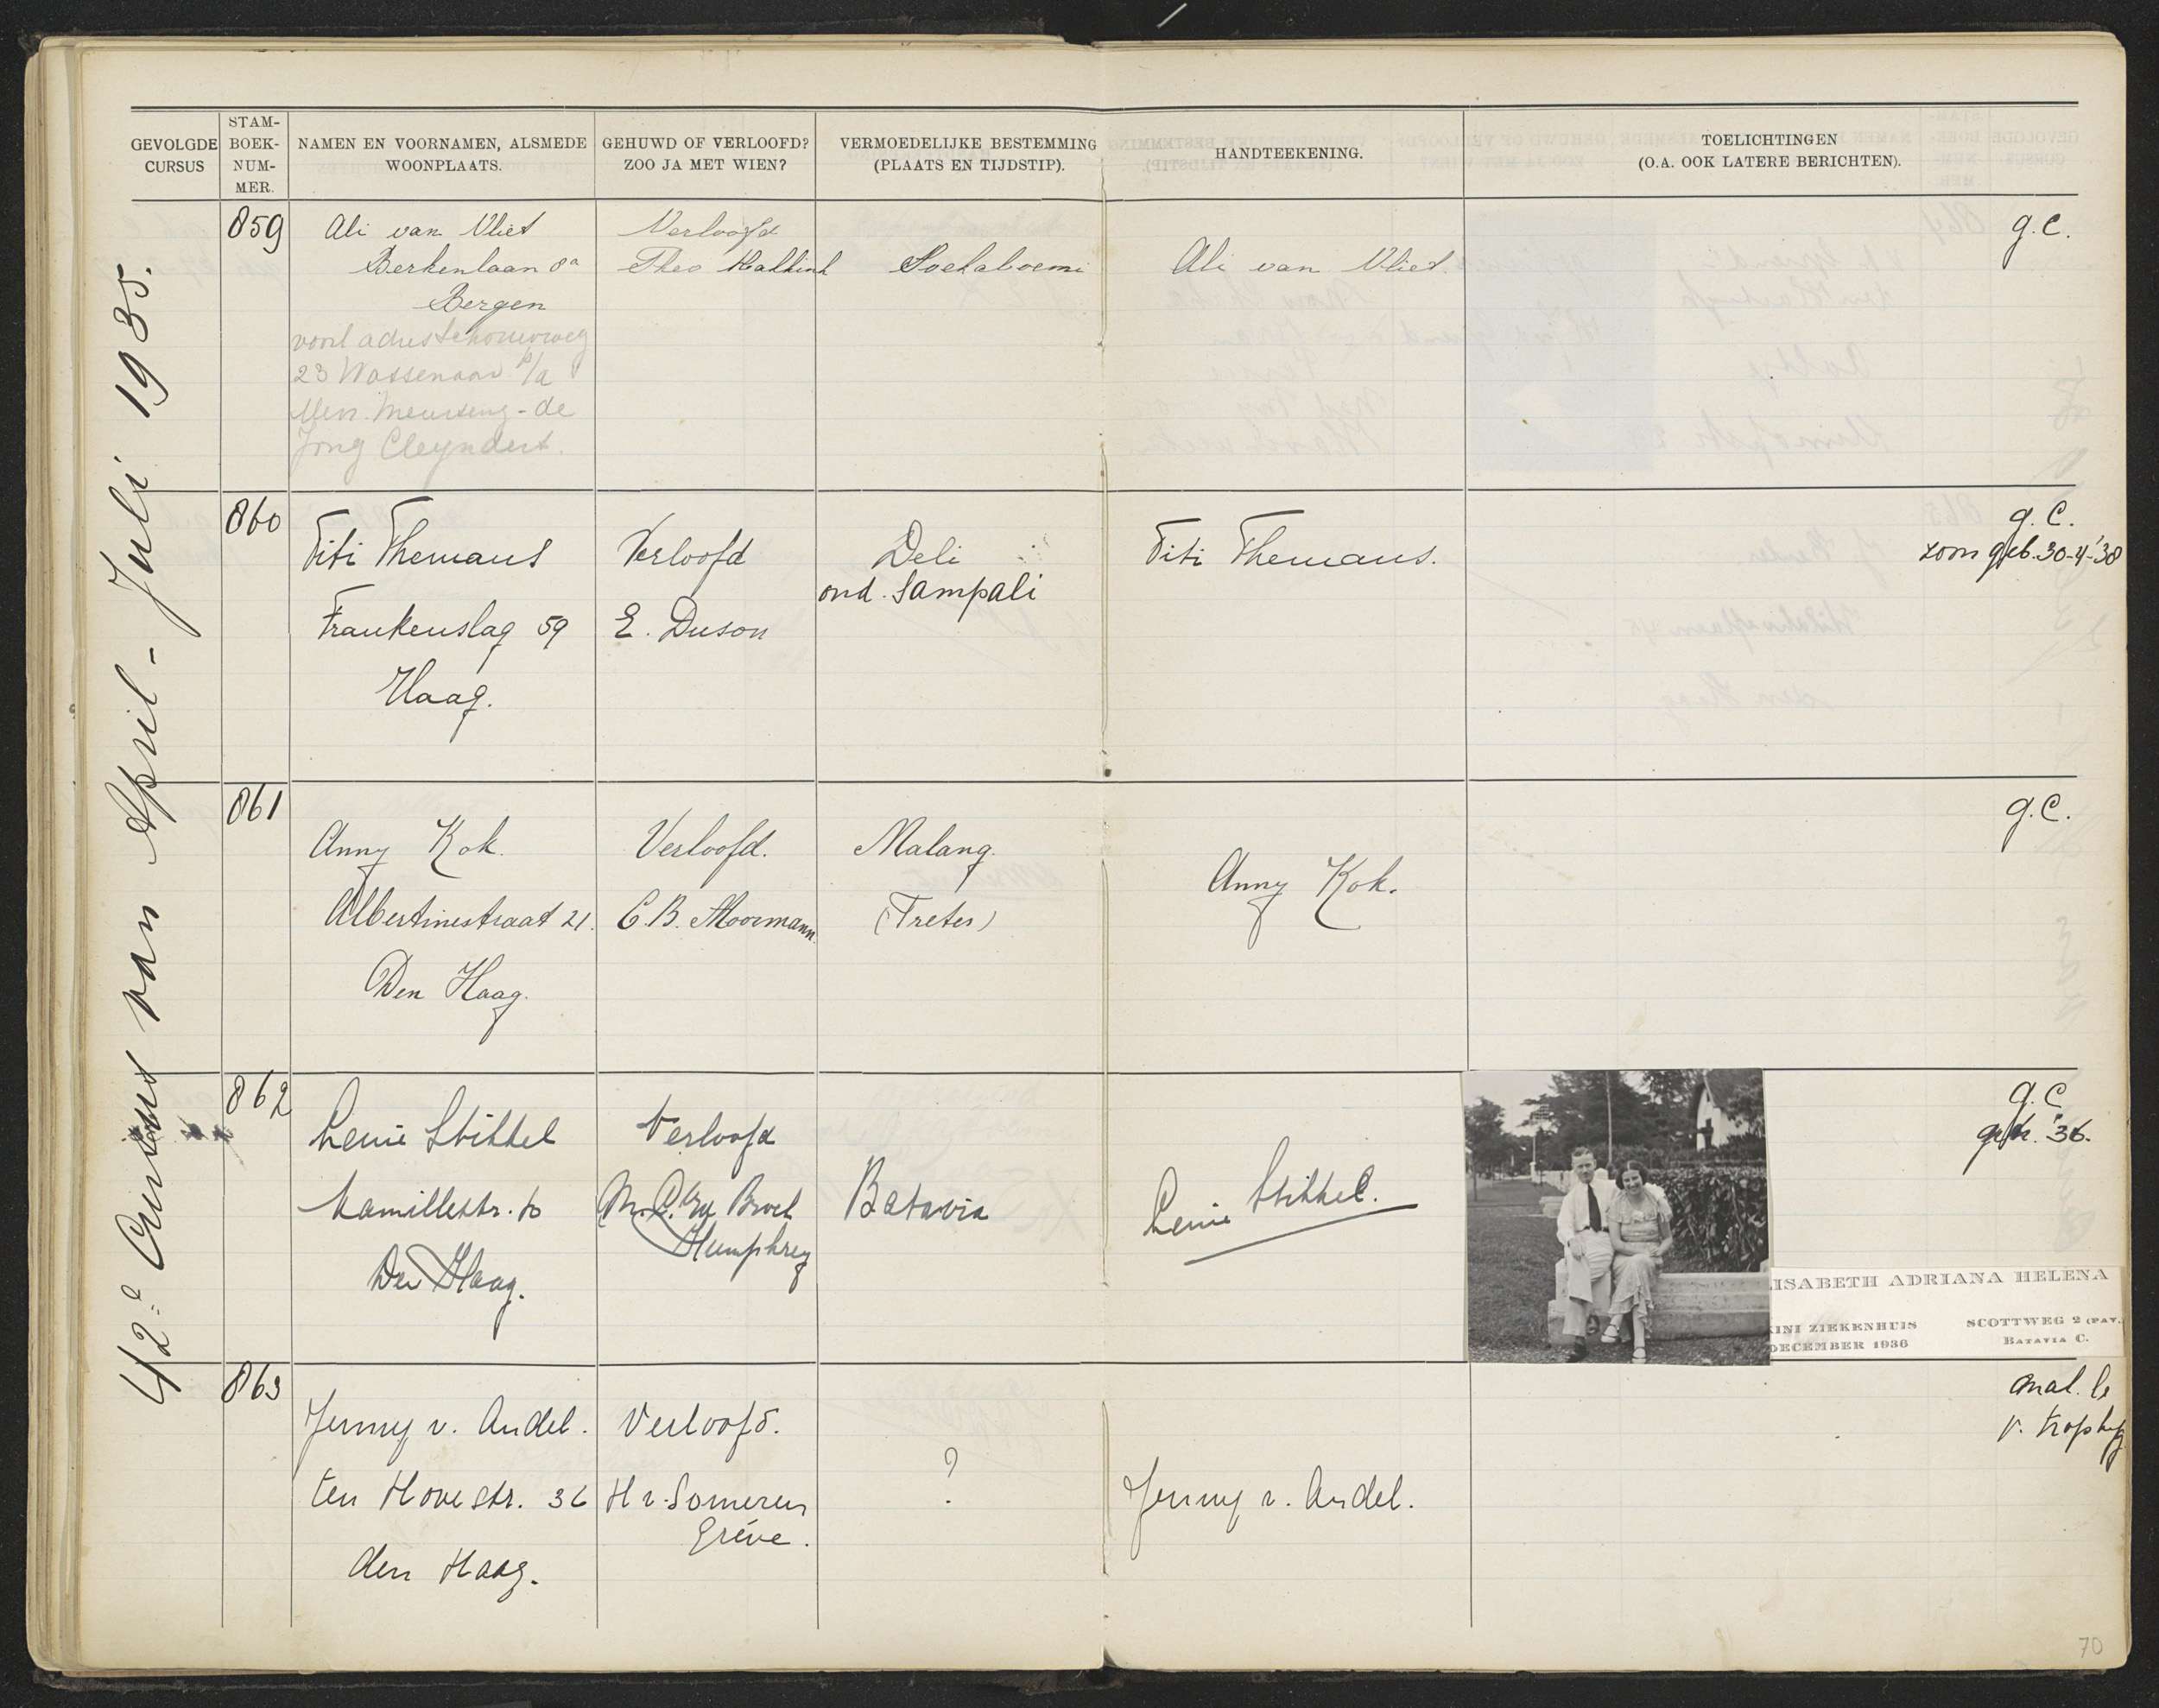 GEVOLGDE CURSUS
STAM-BOEK-NUM-MER.
NAMEN EN VOORNAMEN, ALSMEDE WOONPLAATS.
GEHUWD OF VERLOOFD? ZOO JA MET WIEN?
VERMOEDELIJKE BESTEMMING (PLAATS EN TIJDSTIP).
HANDTEEKENING.
TOELICHTINGEN
(O.A. OOK LATERE BERICHTEN).
42e Cursus van April - Juli 1935.
859
Ali van Vliet
Berkenlaan 8a
Bergen
23 Wassenaar p/a
Jong Cleyndert.
Verloofd
Theo
Soekaboemi
Ali van Vliet.
g.C.
860
Titi Themans
Frankenslag 59
Haag.
Verloofd
E. Duson
Deli
ond. Sampali
Titi Themans.
g.C.
zoon geb. 30-4-'38
861
Anny Kok.
Albertinestraat 21.
Den Haag.
Verloofd.
C.B. Moormann.
Malang.
(Tretes)
Anny Kok.
g.C.
862
Lenie Stikkel
Kamillestr. 10
Den Haag.
Verloofd
Humphrey
Batavia
Lenie Stikkel.
g.C
'36.
ISABETH ADRIANA HELENA
KINI ZIEKENHUIS
DECEMBER 1936
SCOTTWEG 2 (PAV.
BATAVIA C.
863
Jenny v. Andel.
ten Hovestr. 36
den Haag.
Verloofd.
H v. Someren
Gréve.
?
Jenny v. Andel.
mal. le
v. trophyg
70